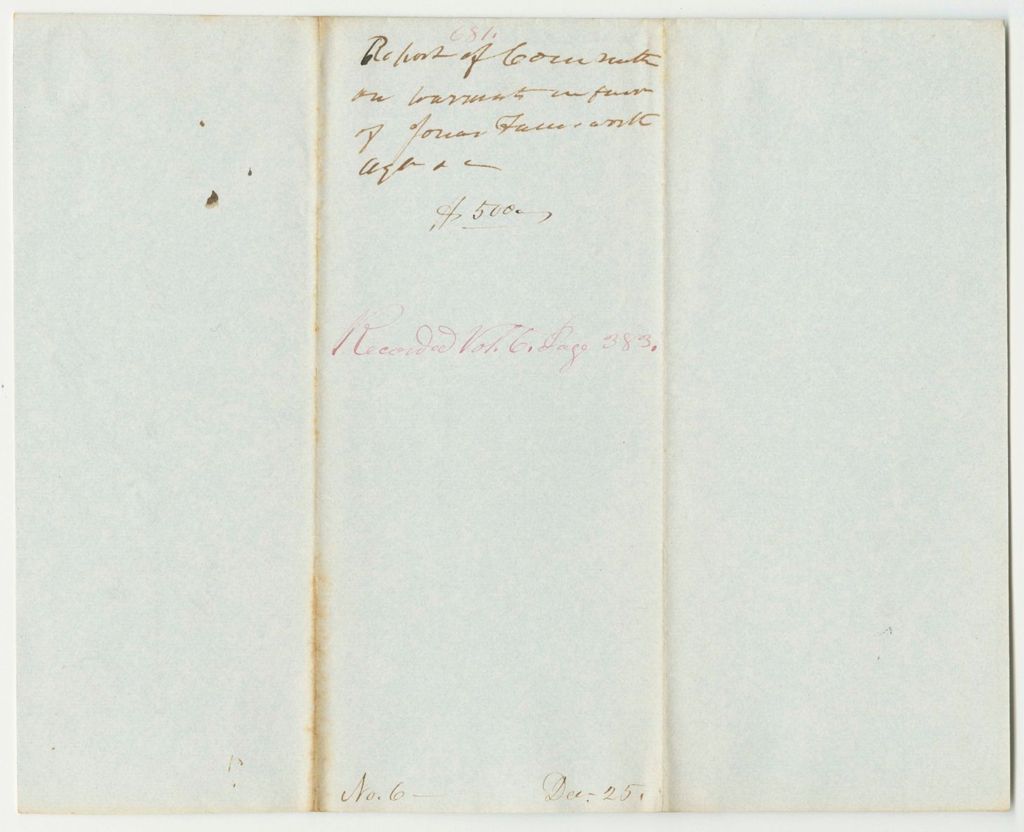 681.
Report of Committe
on warrants in favor
of Jonas Farnsworth
Agt &c
$500
Recorded Vol. 6. Page 383.
No. 6 Dec. 25.